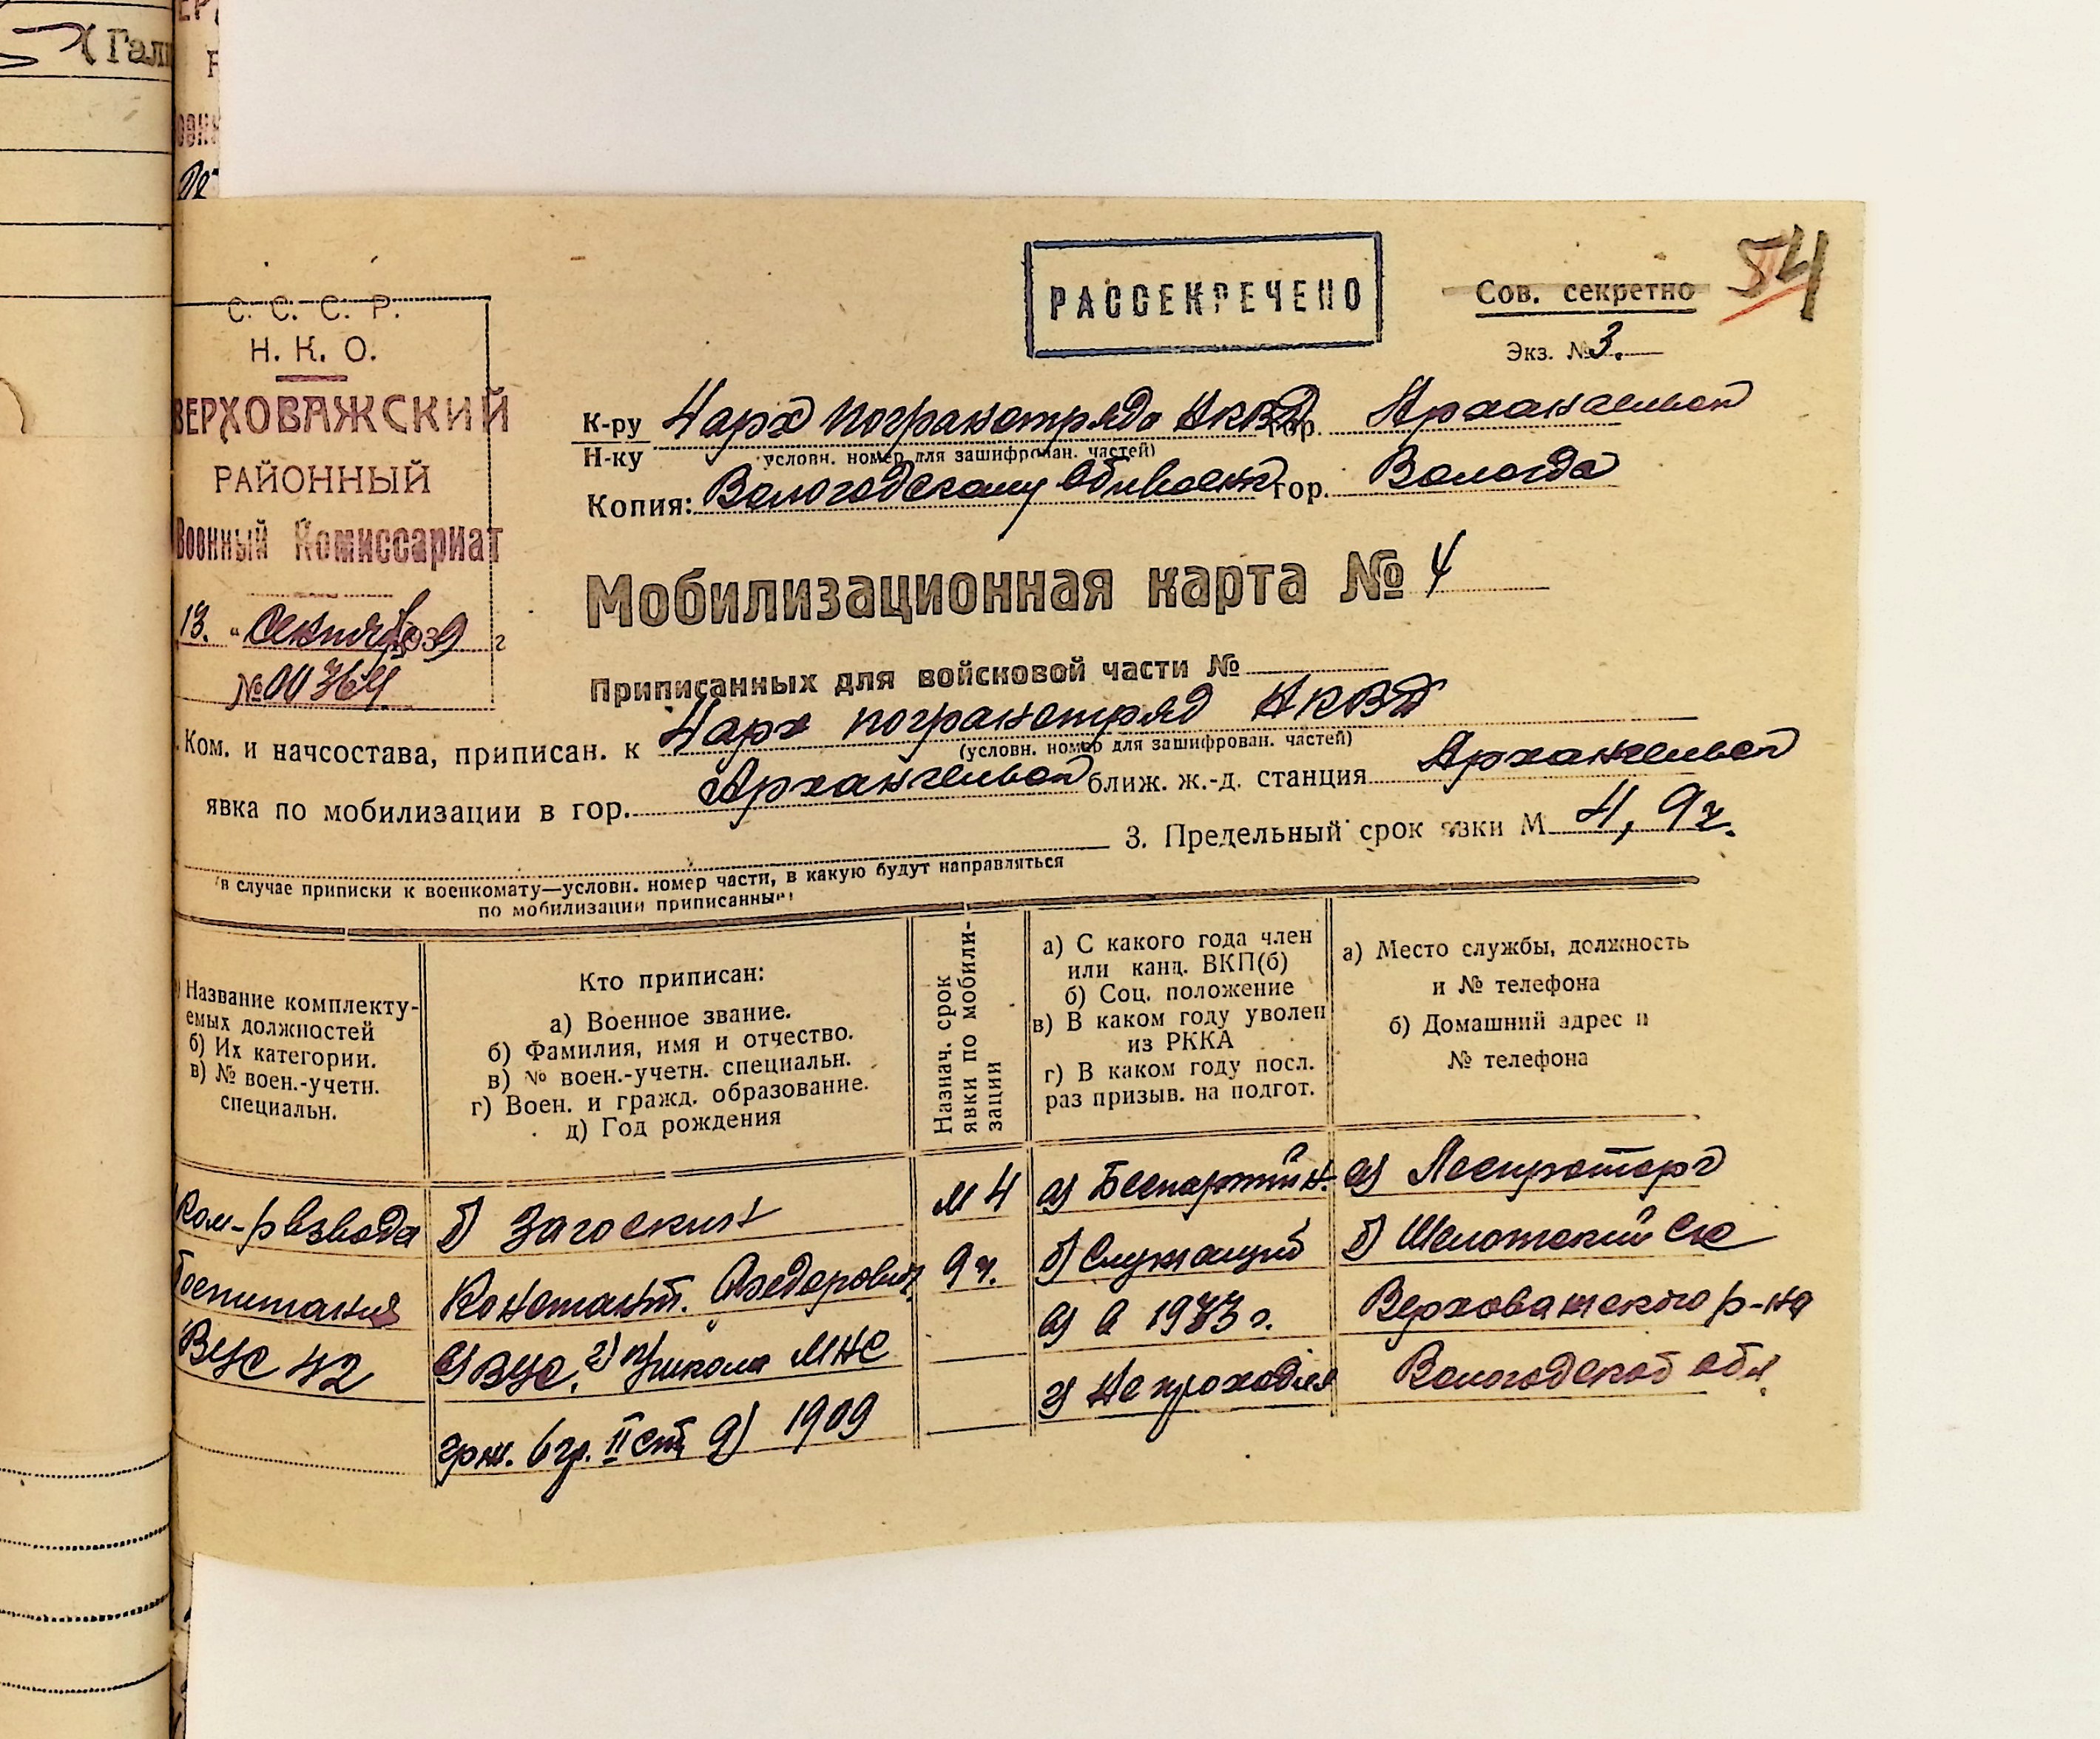 (Гал
РАССЕКРЕЧЕНО
Сов. секретно
54
Экз. № 3.
С. С. С. Р.
Н. К. О.
ВЕРХОВАЖСКИЙ
РАЙОННЫЙ
Военный Комиссариат
13. " Сентября 1939 г
№ 00364
К-ру 4 арх погранотряда НКВД гор. Архангельск
Н-ку
условн. номер для зашифрован. частей)
Копия: Вологодскому Облвоенк гор. Вологда
Мобилизационная карта № 4
Приписанных для войсковой части №
Ком. и начсостава, приписан. к 4 арх погранотряд НКВД
(условн. номер для зашифрован. частей)
явка по мобилизации в гор. Архангельск ближ. ж.-д. станция Архангельск
3. Предельный срок явки М 4, 9 ч.
(в случае приписки к военкомату—условн. номер части, в какую будут направляться
по мобилизации приписанные)
) Название комплекту-
емых должностей
б) Их категории.
в) № воен.-учетн.
специальн.
Кто приписан:
а) Военное звание.
б) Фамилия, имя и отчество.
в) № воен.-учетн. специальн.
г) Воен. и гражд. образование.
д) Год рождения
Назнач. срок
явки по мобили-
зации
а) С какого года член
или канд. ВКП(б)
б) Соц. положение
в) В каком году уволен
из РККА
г) В каком году посл.
раз призыв. на подгот.
а) Место службы, должность
и № телефона
б) Домашний адрес и
№ телефона
Ком-р взвода
боепитания
ВУС 42
б) Загоскин
Констант. Федорович
в) ВУС. г) школа МНС
грж. 6 гр. II ст. д) 1909
М 4
9 ч.
а) Беспартийн.
б) Служащий
в) в 1933 г.
г) Не проходил
а) Леспроторг
б) Шелотский с/с
Верховажского р-на
Вологодской обл